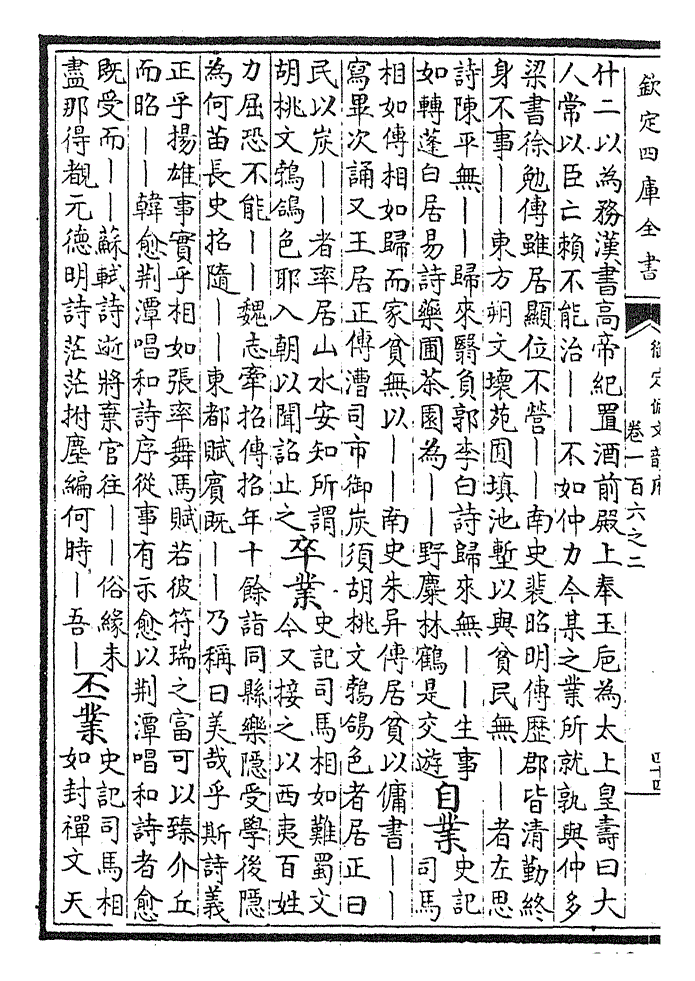 欽定四庫全書
御定佩文韻府
卷一百六之二
四十四
什二以為務漢書高帝紀置酒前殿上奉玉卮為太上皇壽曰大
人常以臣亡賴不能治丨丨不如仲力今某之業所就孰與仲多
梁書徐勉傳雖居顯位不營丨丨南史裴昭明傳歷郡皆清勤終
身不事丨丨東方朔文壞苑囿填池塹以與貧民無丨丨者左思
詩陳平無丨丨歸來翳負郭李白詩歸來無丨丨生事
如轉蓬白居易詩藥圃茶園為丨丨野麋林鶴是交遊
自業
史記
司馬
相如傳相如歸而家貧無以丨丨南史朱异傳居貧以傭書丨丨
寫畢次誦又王居正傳漕司市御炭須胡桃文鶉鴿色者居正曰
民以炭丨丨者率居山水安知所謂
胡桃文鶉鴿色耶入朝以聞詔止之
卒業
史記司馬相如難蜀文
今又接之以西夷百姓
力屈恐不能丨丨魏志牽招傳招年十餘詣同縣樂隱受學後隱
為何苗長史招隨丨丨東都賦賓既丨丨乃稱曰美哉乎斯詩義
正乎揚雄事實乎相如張率舞馬賦若彼符瑞之富可以臻介丘
而昭丨丨韓愈荆潭唱和詩序從事有示愈以荆潭唱和詩者愈
既受而丨丨蘇軾詩逝將棄官往丨丨俗緣未
盡那得覩元德明詩茫茫拊塵編何時丨吾丨
丕業
史記司馬相
如封禪文天